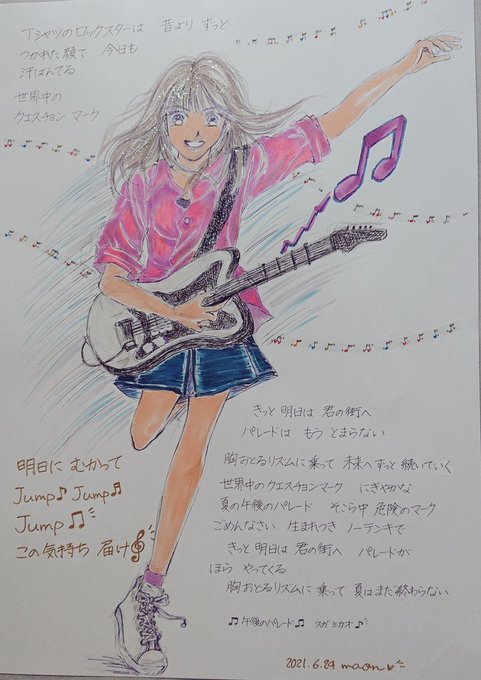 Tシャツのロックスターは 昔より ずっと
つかれた顔で 今日も
汗ばんでる
世界中の
クエスチョン マーク
きっと 明日は 君の街へ
パレードは もう とまらない
胸おどるリズムに 乗って 未来へ ずっと 続いていく
世界中のクエスチョンマーク にぎやかな
夏の午後のパレード そこら中 危険のマーク
ごめんなさい 生まれつき ノーテンキで
きっと 明日は 君の街へ パレードが
ほら やってくる
胸おどるリズムに 乗って 夏はまだ 終わらない
♫午後のパレード♫ スガ シカオ♪
明日に むかって
Jump♪ Jump♬
Jump ♫
この気持ち 届け
2021.6.24 maon